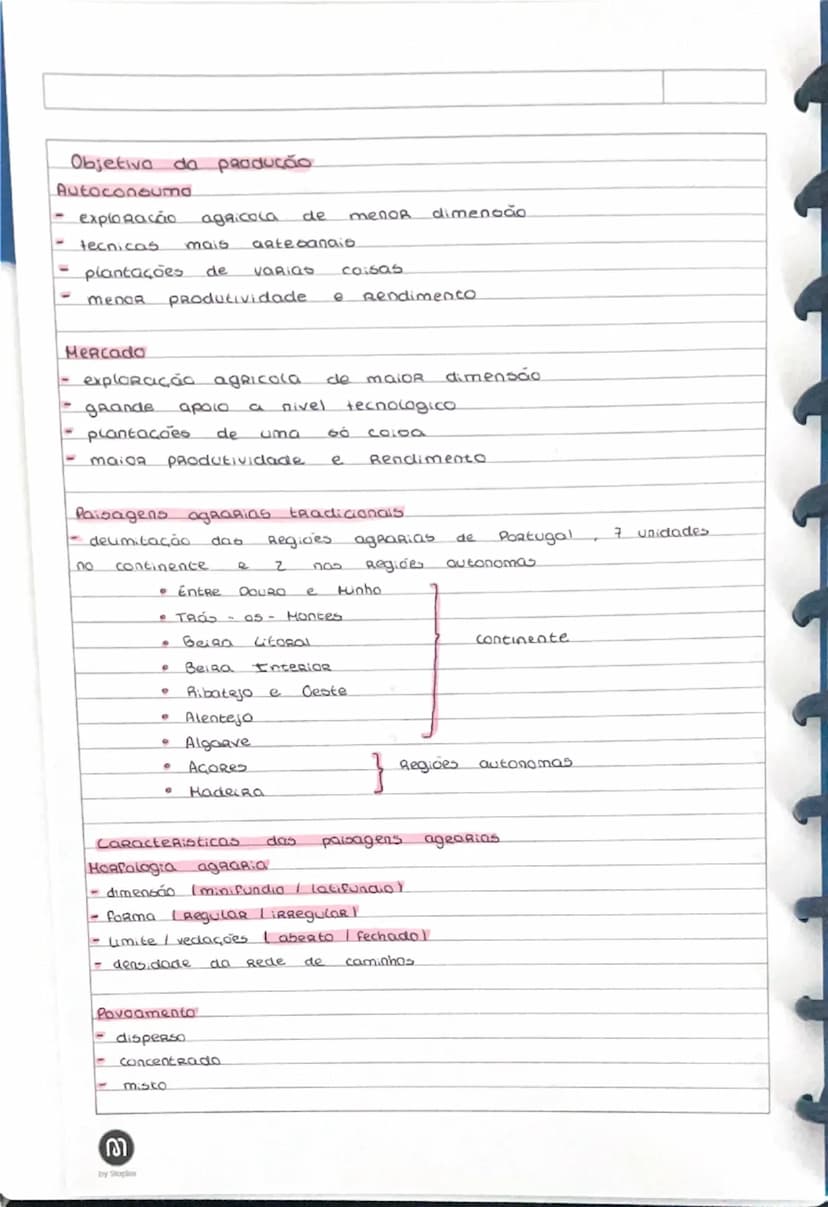 Objetivo da produção
Autoconsumo
- exploração agricola de menor dimensão
- tecnicas mais artesanais
- plantações de varias coisas
- menor produtividade e rendimento
Mercado
- exploração agricola de maior dimensão
- grande apoio a nivel tecnologico
- plantacões de uma só coisa
- maior produtividade e Rendimento
Paisagens agrarias tradicionais
- delimitação das Regiões agrarias de Portugal, 7 unidades
no continente e 2 nas Regiões autonomas
• Entre Douro e Minho
• Trás-os-Montes
• Beira Litoral
continente
• Beira Interior
• Ribatejo e Oeste
• Alentejo
• Algarve
• Açores
Regiões autonomas
• Madeira
Caracteristicas das paisagens agrarias
Morfologia agraria
- dimensão (minifundio / latifundio)
- forma (Regular / irregular)
- limite / vedações (aberto / fechado)
- densidade da Rede de caminhos
Povoamento
- disperso
- concentrado
- misto
M
by Staples